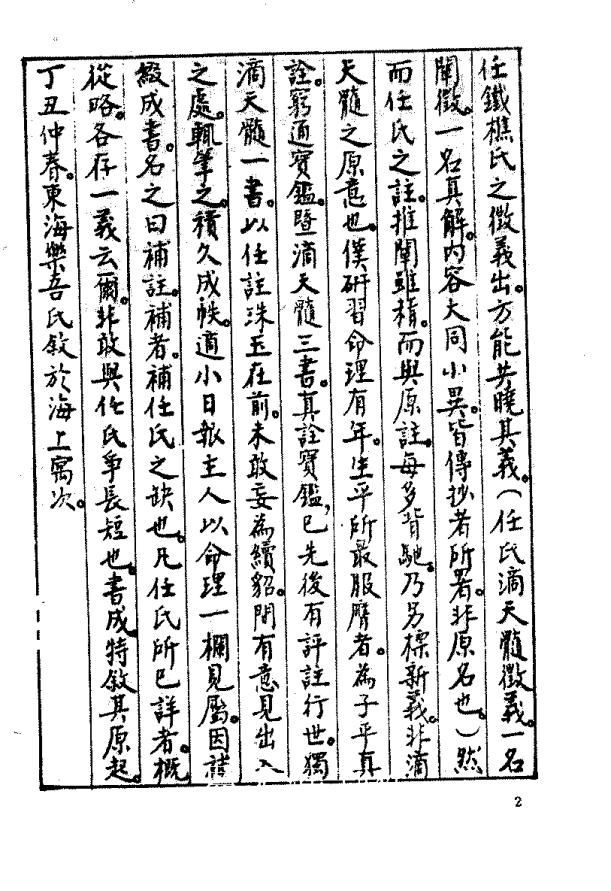 任鐵樵氏之徵義出。方能共曉其義。(任氏滴天髓徵義。一名
闡微。一名真解。內容大同小異。皆傳抄者所署。非原名也。)然
而任氏之註。推闡雖精。而與原註。每多背馳。乃另標新義。非滴
天髓之原意也。僕硏習命理有年。生平所最服膺者。為子平真
詮。窮通寶鑑。暨滴天髓三書。真詮寶鑑,已先後有評註行世。獨
滴天髓一書。以任註珠玉在前。未敢妄為續貂。間有意見出入
之處。輒筆之。積久成帙。適小日報主人以命理一欄見屬。因諱
綴成書。名之曰補註。補者。補任氏之缺也。凡任氏所已詳者。概
從略。各存一義云爾。非敢與任氏爭長短也。書成。特敘其原起。
丁丑仲春。東海樂吾氏敘於海上寓次。
2